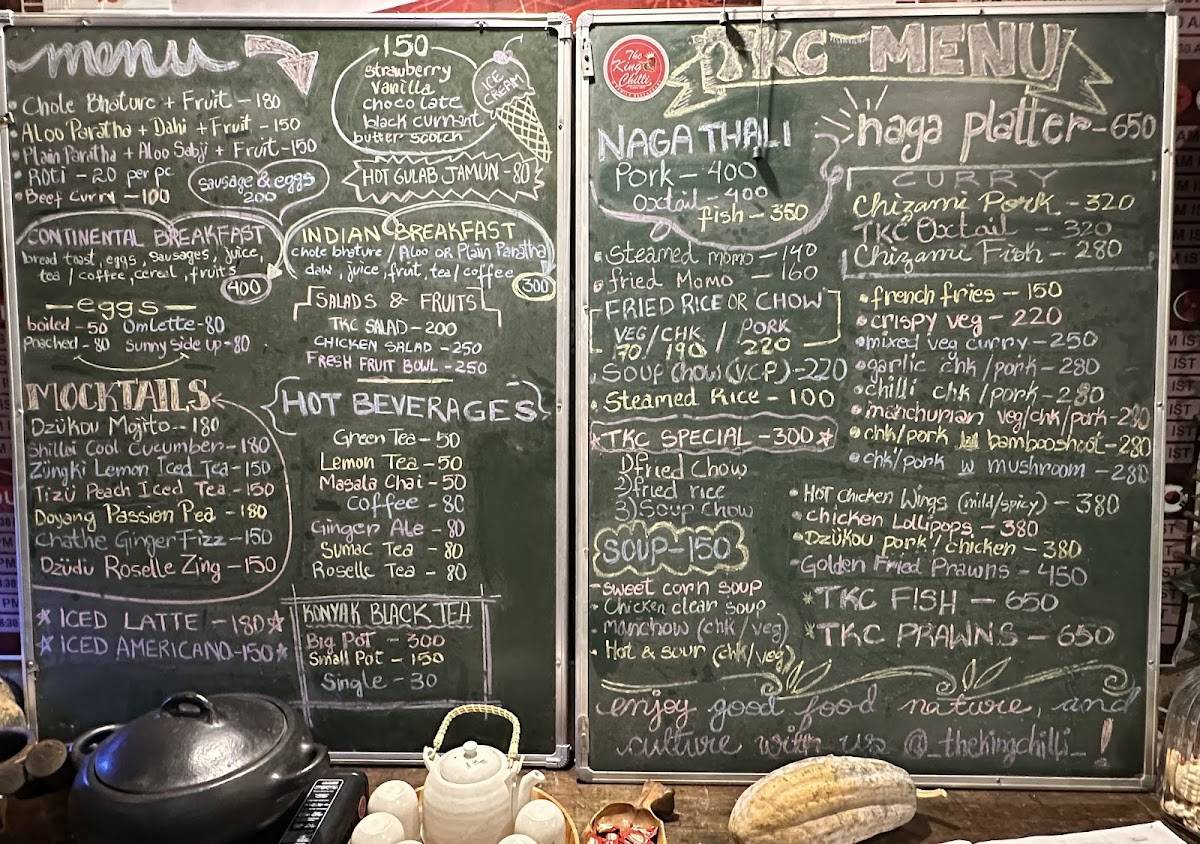 menu
• Chole Bhature + Fruit - 180
• Aloo Paratha + Dahi + Fruit - 150
• Plain Paratha + Aloo Sabji + Fruit - 150
• Roti - 20 per pc
• Beef Curry - 100
sausage & eggs
200
150
strawberry
Vanilla
chocolate
black currant
butter scotch
ICE
CREAM
HOT GULAB JAMUN - 80
CONTINENTAL BREAKFAST
bread toast, eggs, sausages, juice,
tea / coffee, cereal, fruits
400
INDIAN BREAKFAST
chole bhature / Aloo OR Plain Paratha
daw, juice, fruit, tea/coffee
300
- eggs -
boiled - 50 Omlette - 80
Poached - 80 Sunny side up - 80
SALADS & FRUITS
TKC SALAD - 200
CHICKEN SALAD - 250
FRESH FRUIT BOWL - 250
MOCKTAILS
Dzükou Mojito - 180
Shilloi Cool Cucumber - 180
Züngki Lemon Iced Tea - 150
Tizü Peach Iced Tea - 150
Doyang Passion Pea - 180
Chathe Ginger Fizz - 150
Dzüdü Roselle Zing - 150
ICED LATTE - 180
ICED AMERICANO - 150
HOT BEVERAGES
Green Tea - 50
Lemon Tea - 50
Masala Chai - 50
Coffee - 80
Ginger Ale - 80
Sumac Tea - 80
Roselle Tea - 80
KONYAK BLACK TEA
Big Pot - 300
Small Pot - 150
Single - 30
The
King
Chilli
TKC MENU
NAGA THALI
Pork - 400
Oxtail - 400
fish - 350
naga platter - 650
CURRY
Chizami Pork - 320
TKC Oxtail - 320
Chizami Fish - 280
• Steamed momo - 140
• fried Momo - 160
FRIED RICE OR CHOW
VEG / CHK / PORK
170/ 190 / 220
• Soup Chow (V,C,P) - 220
• Steamed Rice - 100
TKC SPECIAL - 300
1) fried Chow
2) fried rice
3) Soup Chow
SOUP - 150
- sweet corn soup
• Chicken clear soup
• Manchow (chk / veg)
• Hot & sour (chk/veg)
• french fries - 150
• crispy veg - 220
• mixed veg curry - 250
• garlic chk / pork - 280
• chilli chk / pork - 280
• manchurian veg/chk/pork - 280
• chk/pork bambooshoot - 280
• chk/pork w mushroom - 280
• Hot Chicken Wings (mild/spicy) - 380
• chicken Lollipops - 380
• Dzükou pork / chicken - 380
• Golden Fried Prawns - 450
* TKC FISH - 650
* TKC PRAWNS - 650
enjoy good food nature, and
culture with us @_thekingchilli_ !